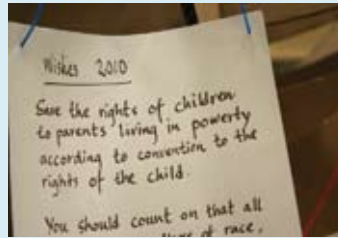 Wishes 2010
Save the rights of children
to parents living in powerty
according to convention to the
rights of the child.
You should count on that all
of race,